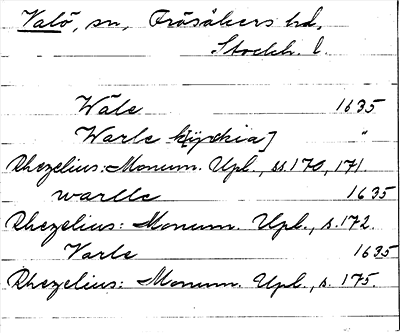 Valö, sn, Frösåkers hd,
Stockh. l.
Wäle 1635
Warle k[iyrchia] "
Rhezelius: Monum. Upl., ss. 170, 171.
warlle 1635
Rhezelius: Monum. Upl., s. 172.
Varle 1635
Rhezelius: Monum. Upl., s. 175.